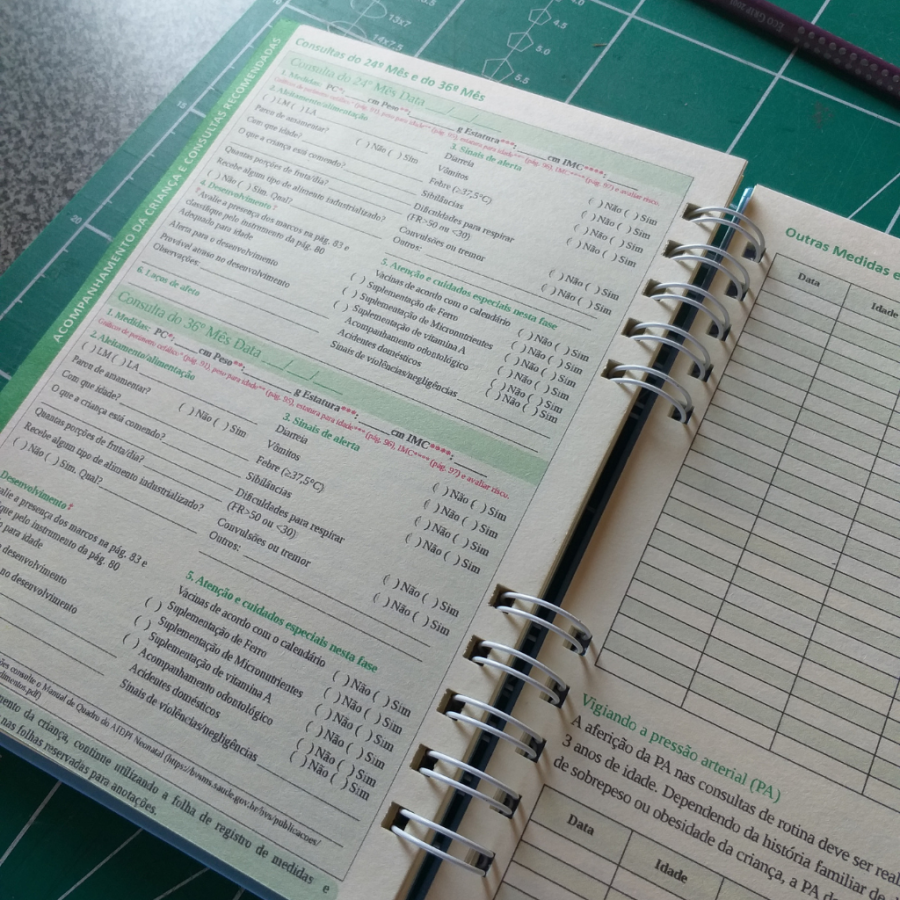 ACOMPANHAMENTO DA CRIANÇA E CONSULTAS RECOMENDADAS
Consultas do 24º Mês e do 36º Mês
Consulta do 24º Mês Data ___/___/___
1. Medidas: PC*:_____cm Peso**:________g Estatura***:_____cm IMC****:_____
2. Aleitamento/alimentação
( ) LM ( ) LA
Parou de amamentar? ( ) Não ( ) Sim
Com que idade?
O que a criança está comendo?
Quantas porções de fruta/dia?
Recebe algum tipo de alimento industrializado?
( ) Não ( ) Sim. Qual?
4. Desenvolvimento †
†Avalie a presença dos marcos na pág. 83 e
classifique pelo instrumento da pág. 80
Adequado para idade
Alerta para o desenvolvimento
Provável atraso no desenvolvimento
Observações:
6. Laços de afeto
3. Sinais de alerta
Diarreia ( ) Não ( ) Sim
Vômitos ( ) Não ( ) Sim
Febre (≥37,5°C) ( ) Não ( ) Sim
Sibilâncias ( ) Não ( ) Sim
Dificuldades para respirar
(FR>50 ou <30) ( ) Não ( ) Sim
Convulsões ou tremor ( ) Não ( ) Sim
Outros:
5. Atenção e cuidados especiais nesta fase
Vacinas de acordo com o calendário ( ) Não ( ) Sim
( ) Suplementação de Ferro ( ) Não ( ) Sim
( ) Suplementação de Micronutrientes ( ) Não ( ) Sim
( ) Suplementação de vitamina A ( ) Não ( ) Sim
( ) Acompanhamento odontológico ( ) Não ( ) Sim
Acidentes domésticos ( ) Não ( ) Sim
Sinais de violências/negligências ( ) Não ( ) Sim
Consulta do 36º Mês Data ___/___/___
1. Medidas: PC*:_____cm Peso**:________g Estatura***:_____cm IMC****:_____
(pág. 95), estatura para idade*** (pág. 96), IMC**** (pág. 97) e avaliar risco.
2. Aleitamento/alimentação
( ) LM ( ) LA
Parou de amamentar? ( ) Não ( ) Sim
Com que idade?
O que a criança está comendo?
Quantas porções de fruta/dia?
Recebe algum tipo de alimento industrializado?
( ) Não ( ) Sim. Qual?
Desenvolvimento †
alie a presença dos marcos na pág. 83 e
que pelo instrumento da pág. 80
para idade
desenvolvimento
no desenvolvimento
3. Sinais de alerta
Diarreia ( ) Não ( ) Sim
Vômitos ( ) Não ( ) Sim
Febre (≥37,5°C) ( ) Não ( ) Sim
Sibilâncias ( ) Não ( ) Sim
Dificuldades para respirar
(FR>50 ou <30) ( ) Não ( ) Sim
Convulsões ou tremor ( ) Não ( ) Sim
Outros:
5. Atenção e cuidados especiais nesta fase
Vacinas de acordo com o calendário ( ) Não ( ) Sim
( ) Suplemento de Ferro ( ) Não ( ) Sim
( ) Suplementação de Micronutrientes ( ) Não ( ) Sim
( ) Suplementação de vitamina A ( ) Não ( ) Sim
( ) Acompanhamento odontológico ( ) Não ( ) Sim
Acidentes domésticos ( ) Não ( ) Sim
Sinais de violências/negligências ( ) Não ( ) Sim
consulte o Manual de Quadro do AIDPI Neonatal (https://bvsms.saude.gov.br/bvs/publicacoes/
dimentos.pdf)
mento da criança, continue utilizando a folha de registro de medidas e
nas folhas reservadas para anotações.
Outras Medidas e
Data Idade
Vigiando a pressão arterial (PA)
A aferição da PA nas consultas de rotina deve ser real
3 anos de idade. Dependendo da história familiar de
de sobrepeso ou obesidade da criança, a PA de
Data Idade
13x7
14x7.5
4.5
5.0
5.5
15
20